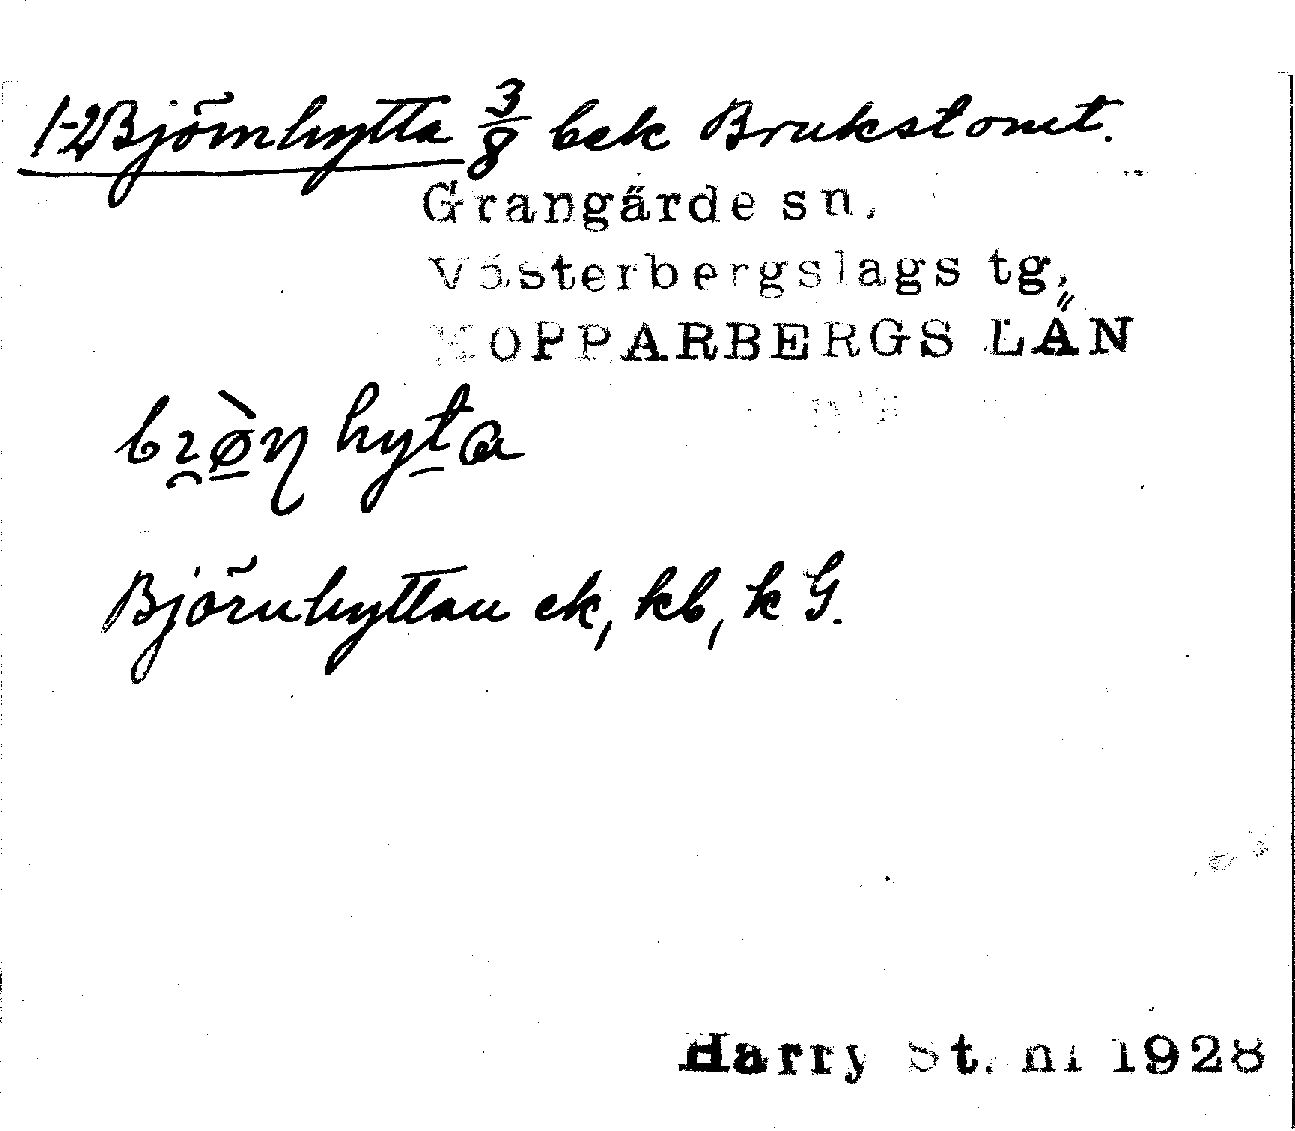 1-2 Björnhytta 3/8 bek Brukstomt.
Grangärde sn.
Västerbergslags tg.
KOPPARBERGS LÄN
Björnhyttan ek, kb, k G.
Harry Ståhl 1928